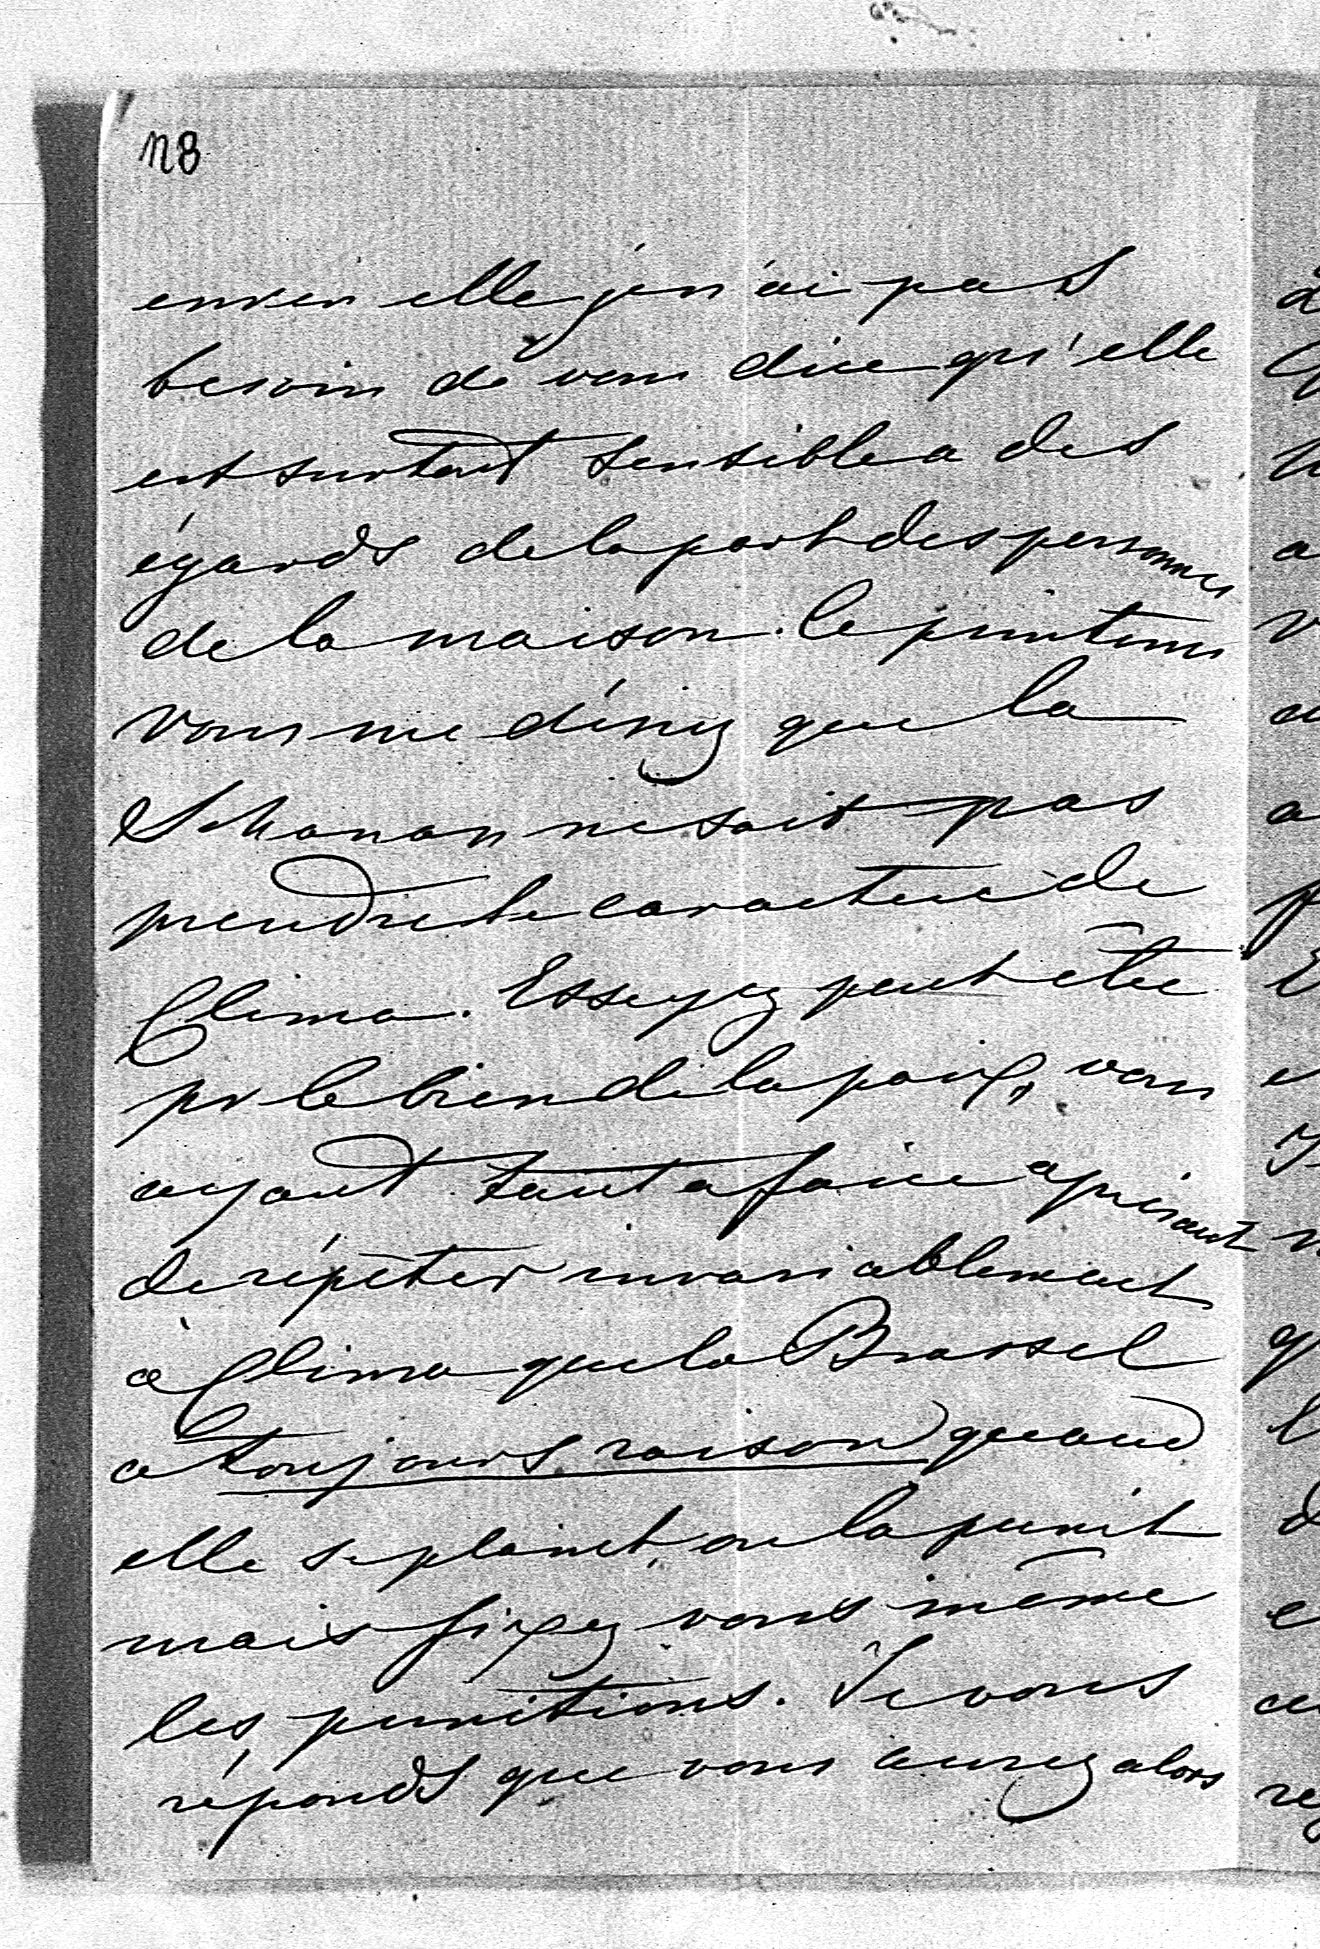 N8
envers elle je n'ai pas
besoin de vous dire qu'elle
est surtout sensible a des
égards de la part des personnes
de la maison. Ce printems
vous me disiez que la
Schonan ne sait pas
prendre le caractere de
Clima. Essayez peut être
pr le bien de la paix, vous
ayant tant a faire apresent
de répéter invariablement
à Clima que la Brassel
a toujours raison quand
elle se plaint, on la punit
mais fixez vous même
les punitions. Je vous
réponds que vous aurez alors